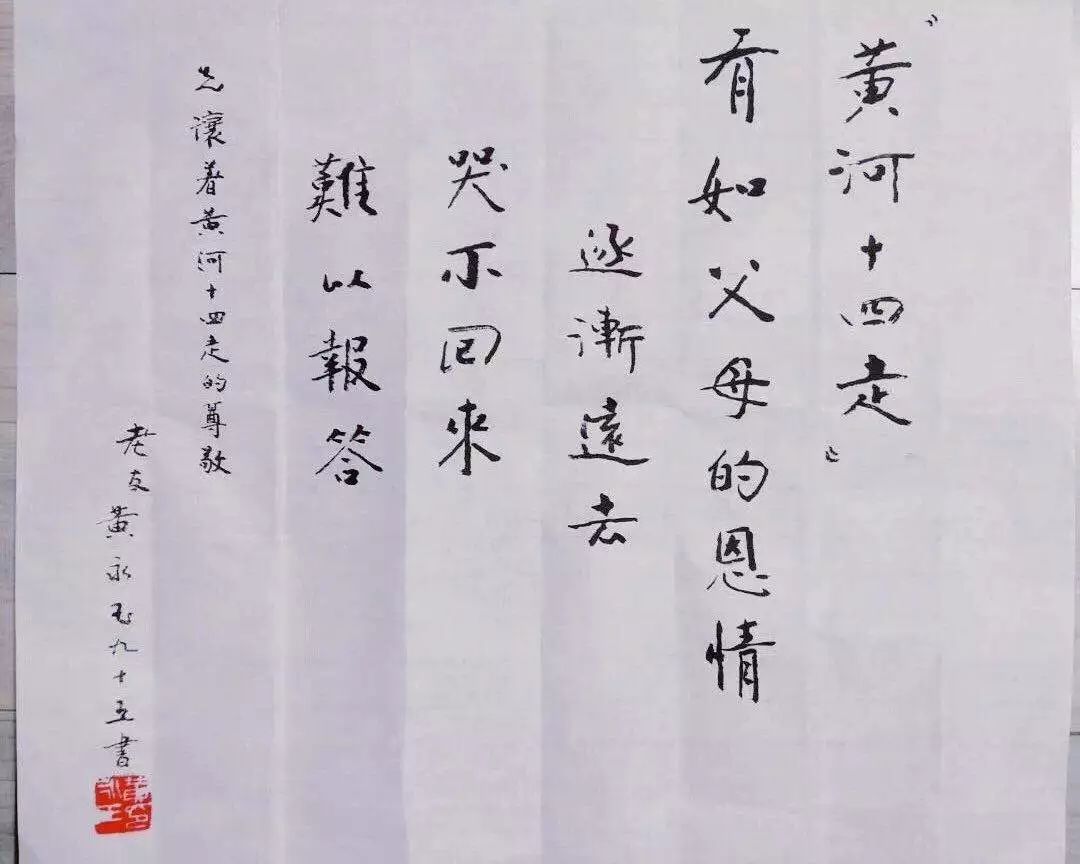 "黄河十四走"
有如父母的恩情
逐漸遠去
哭不回來
難以報答
先讓着黄河十四走的尊敬
老友黄永玉九十五書